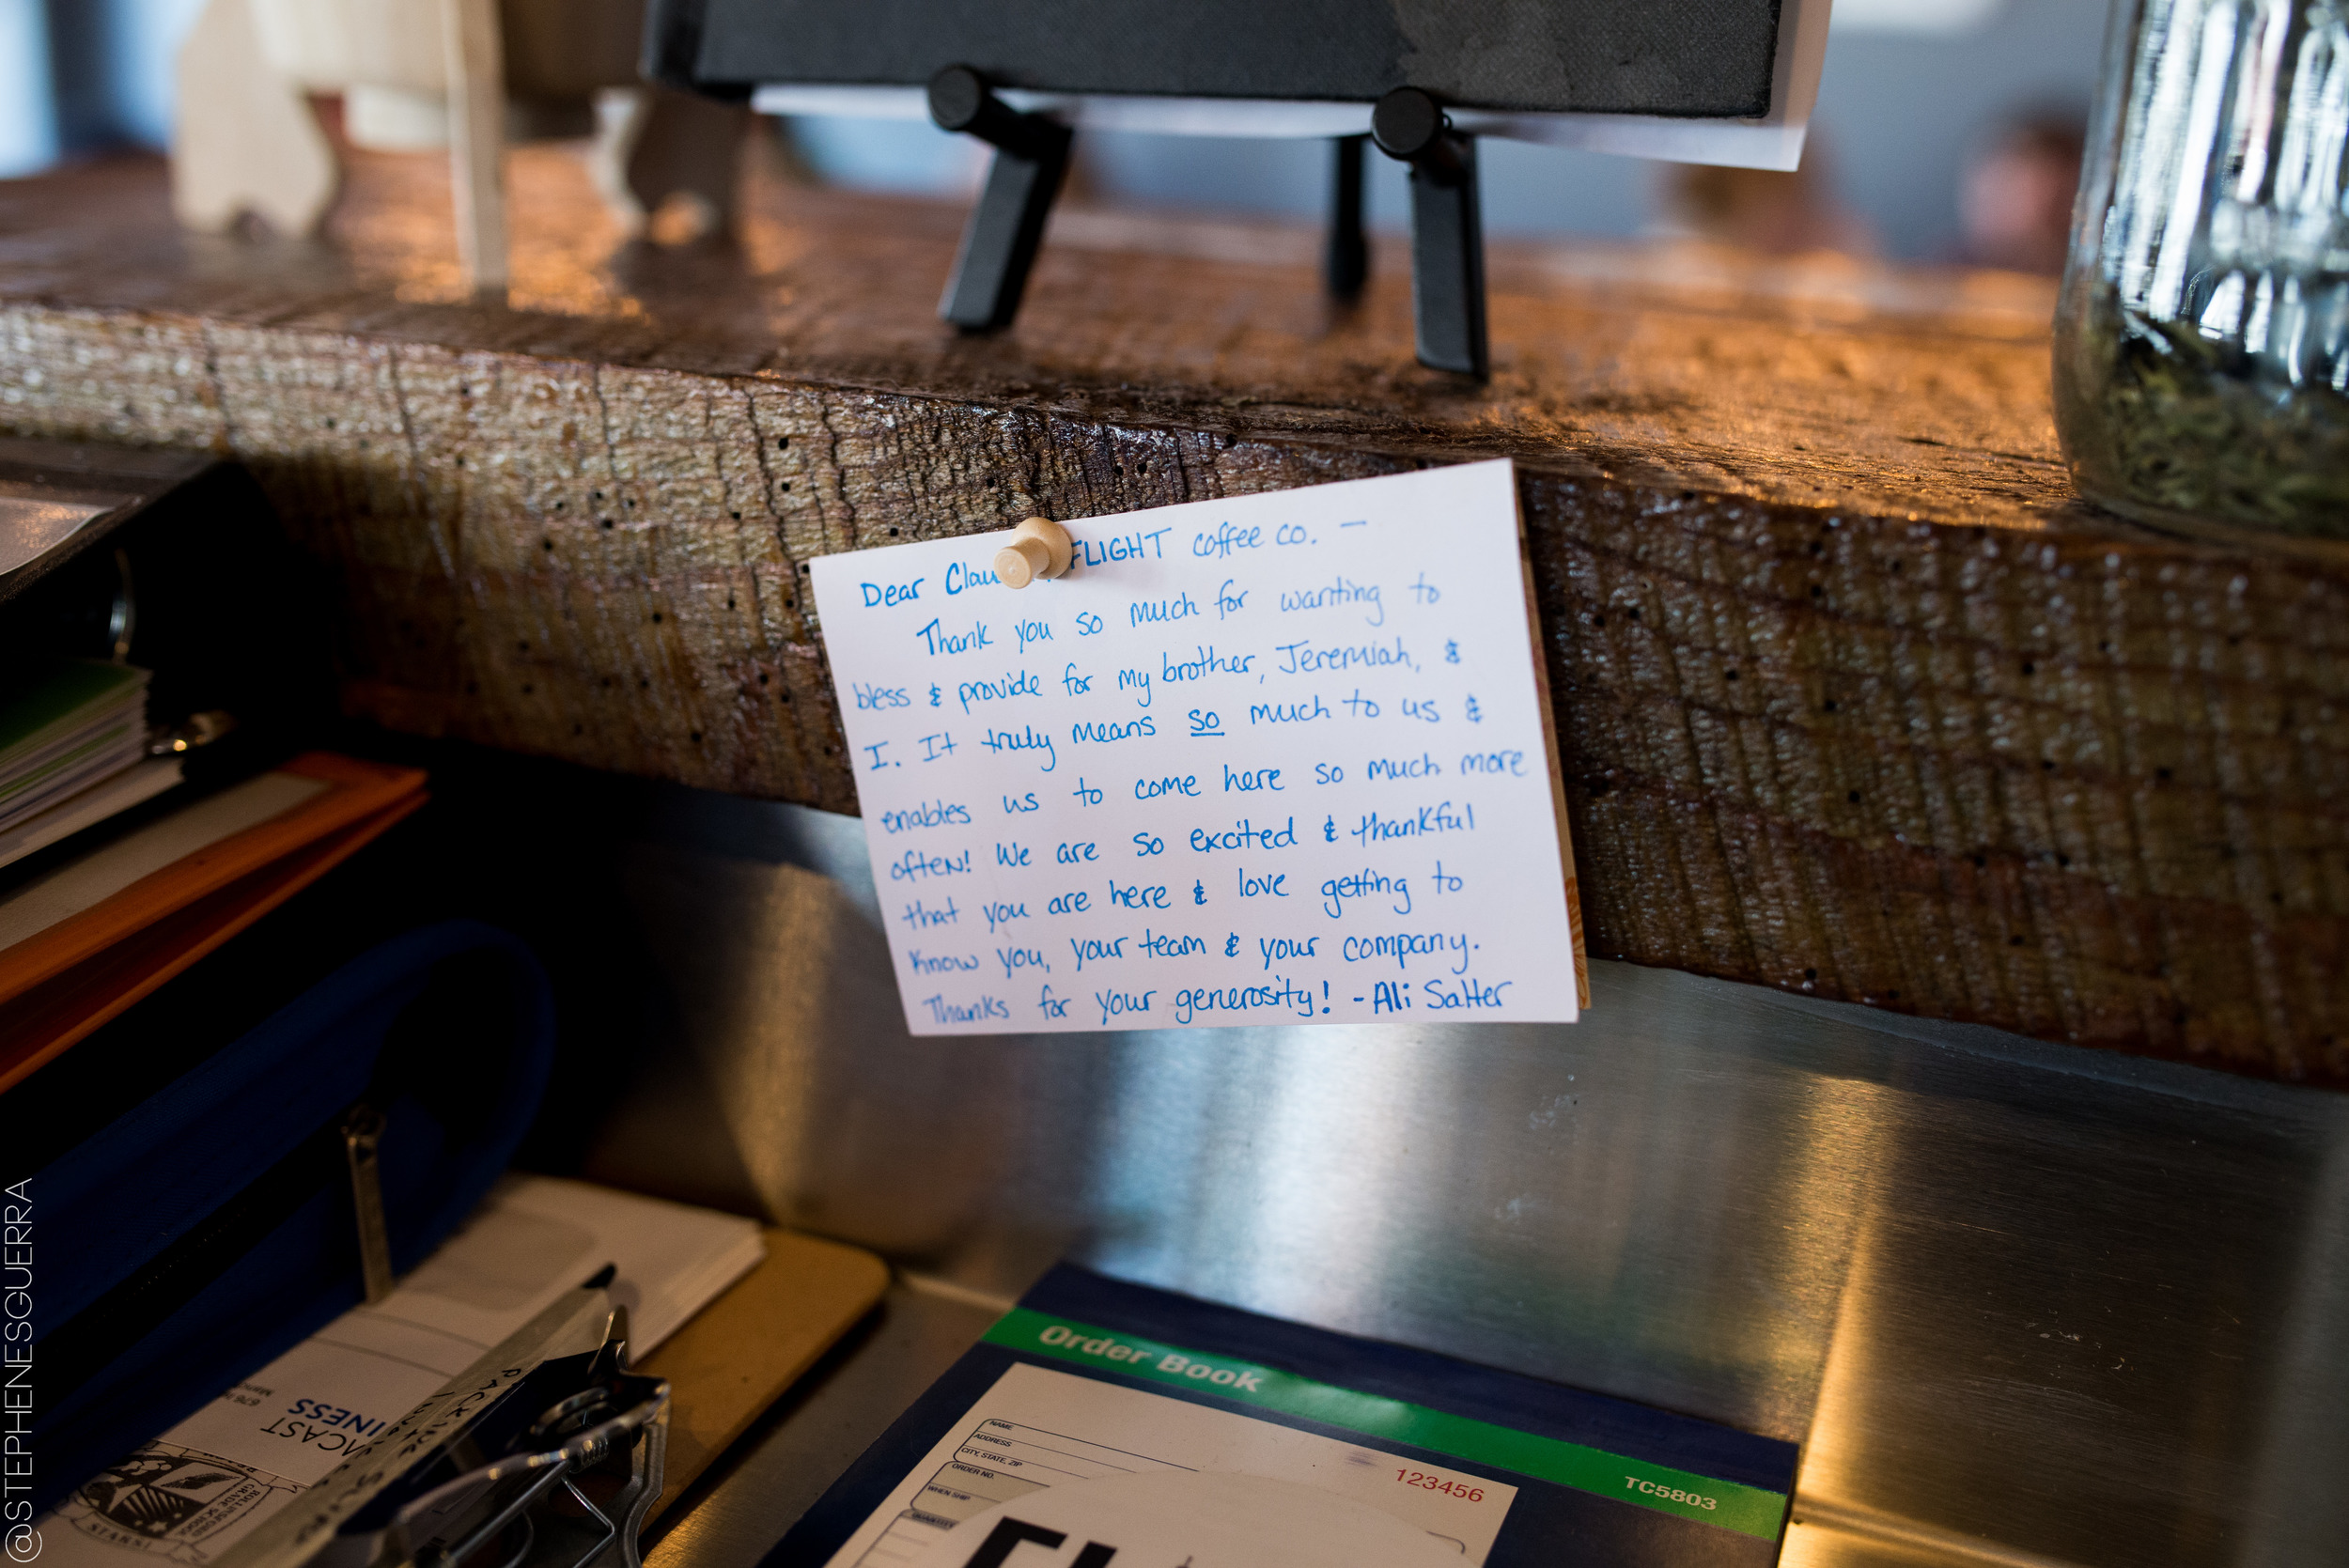 Dear Clau FLIGHT coffee co. —
Thank you so much for wanting to
bless & provide for my brother, Jeremiah, &
I. It truly means so much to us &
enables us to come here so much more
often! We are so excited & thankful
that you are here & love getting to
know you, your team & your company.
Thanks for your generosity! -Ali Salter
Order Book
TC5803
NAME
ADDRESS
CITY, STATE, ZIP
ORDER NO.
WHEN SHIP
QUANTITY
123456
INESS
@STEPHENESGUERRA